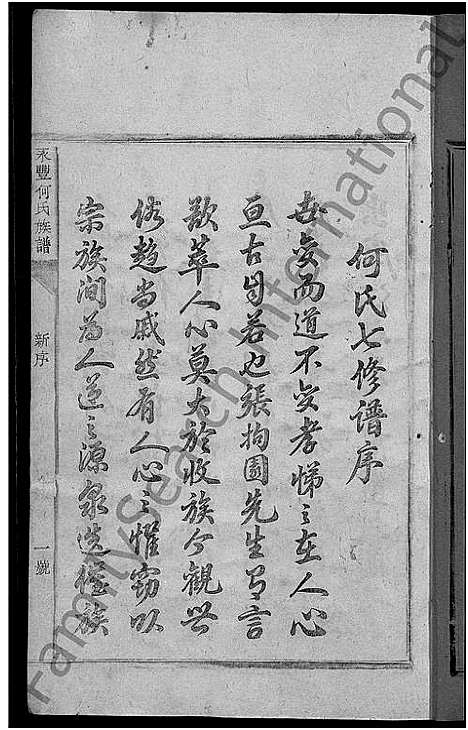 何氏七修谱序
世變而道不變孝悌之在人心
亘古自若也張拘園先生有言
歙萃人心莫大於收族今觀世
俗趨尚戚然有人心之懼竊以
宗族間為人道之源泉迭經族
永豐何氏族譜
新序
一號
FamilySearch International